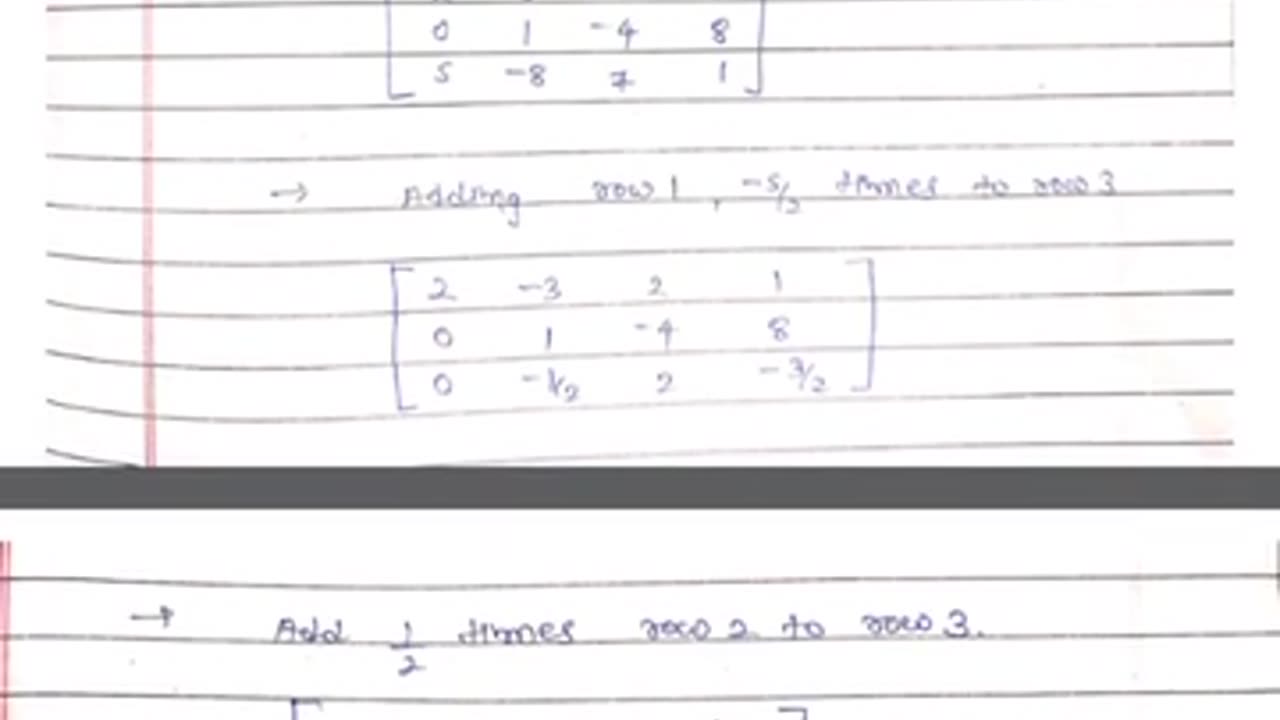 0 1 -4 8
5 -8 7 1
→ Adding row 1, -5/2 times to row 3
2 -3 2 1
0 1 -4 8
0 -1/2 2 -3/2
→ Add 1/2 times row 2 to row 3.